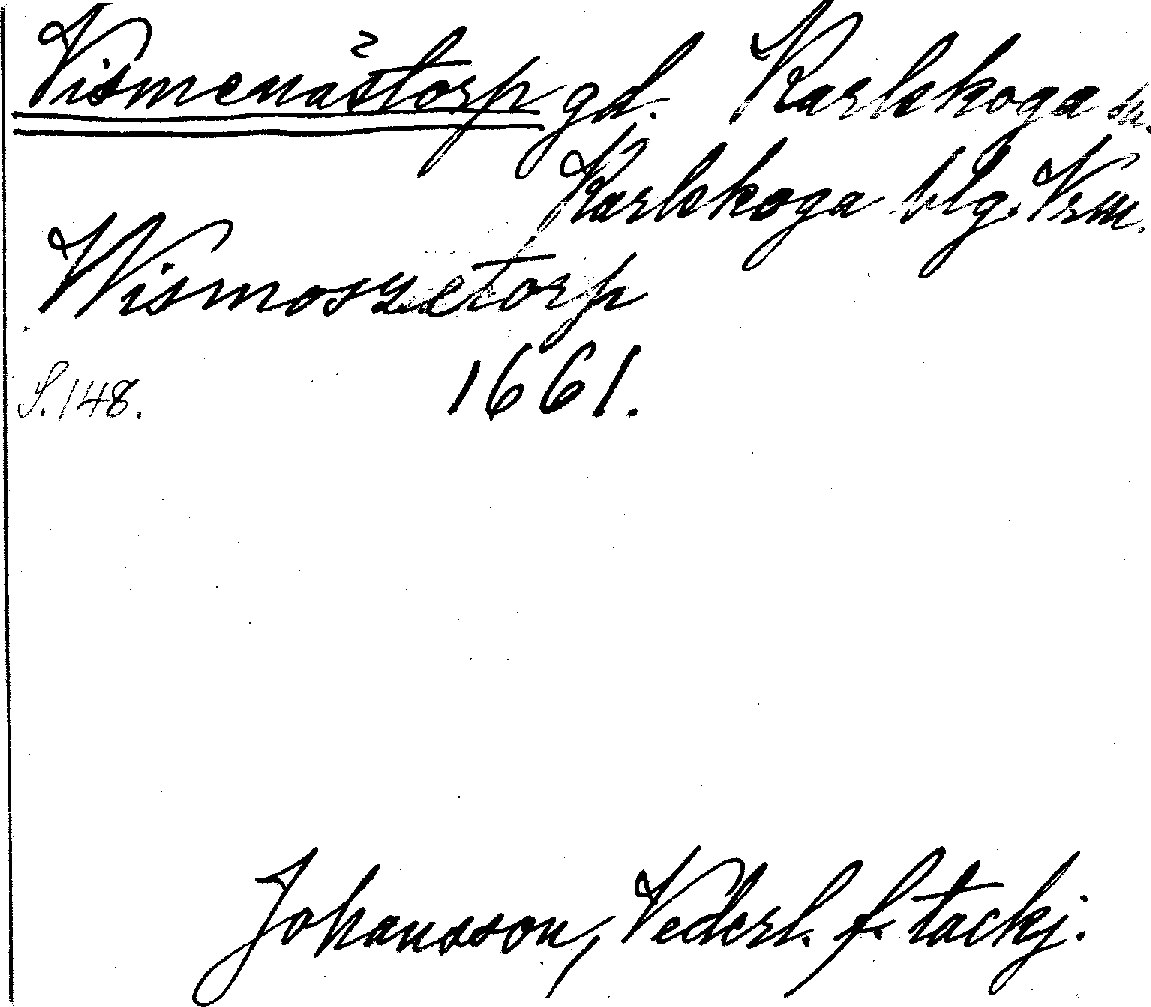 Vismenästorp gd. Karlskoga sn.
Karlskoga blg. Vrm.
Wismoszetorp
S. 148. 1661.
Johansson, Vederl. f. tackj.